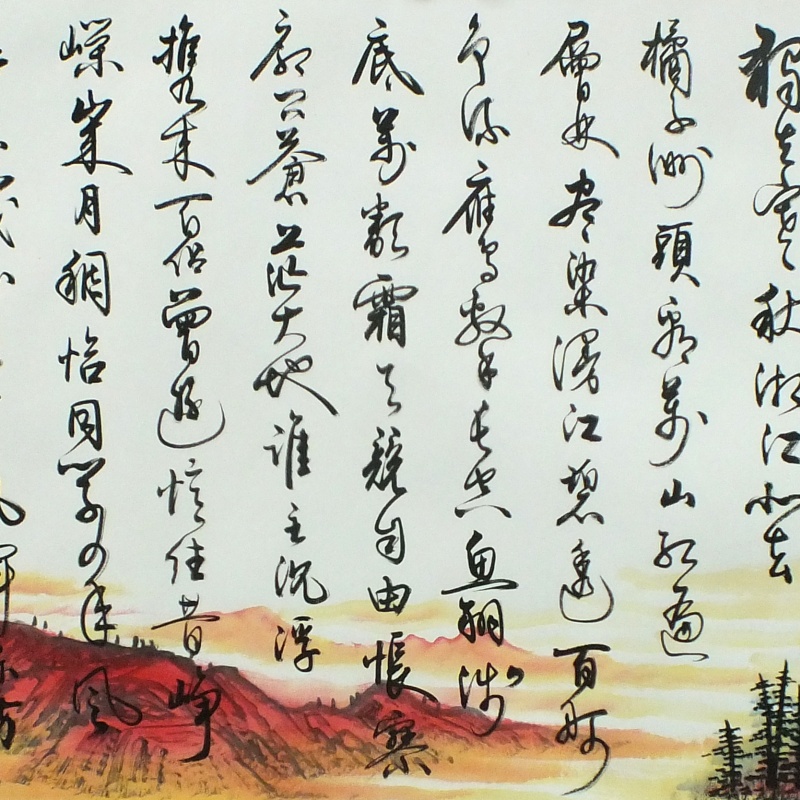 獨立寒秋湘江北去
橘子洲頭看萬山紅遍
層林盡染漫江碧透百舸
争流鷹擊長空魚翔淺
底萬類霜天競自由悵寥
廓問蒼茫大地誰主沉浮
攜來百侣曾遊憶往昔崢
嶸歲月稠恰同學少年風